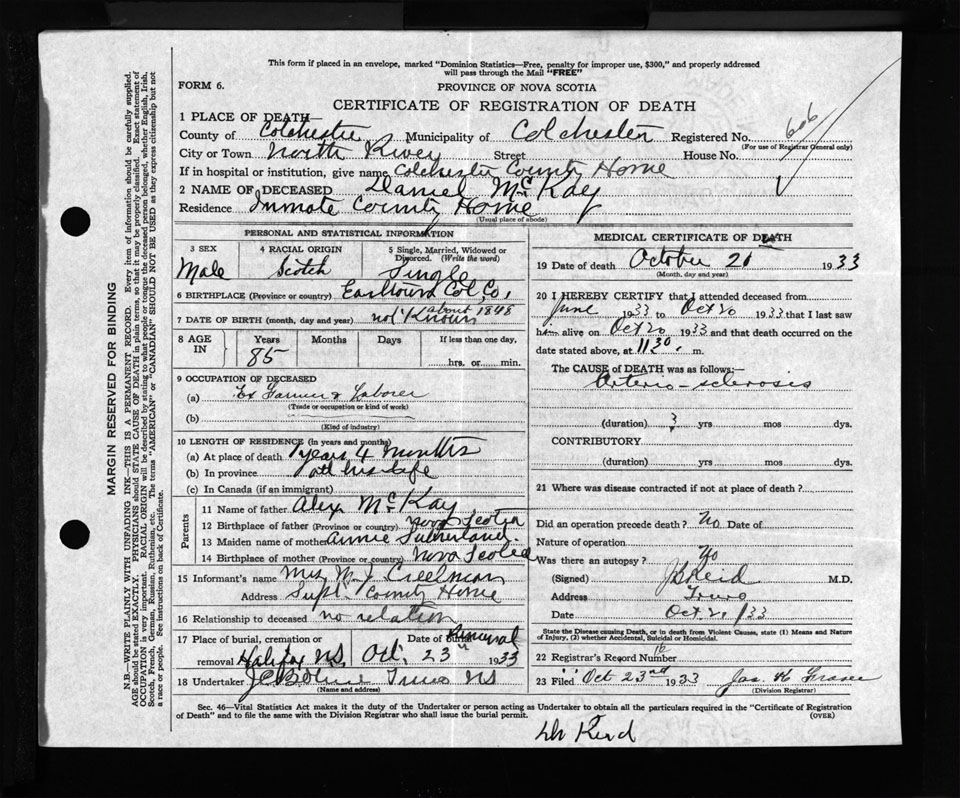 This form if placed in an envelope, marked "Dominion Statistics—Free, penalty for improper use, $300," and properly addressed
will pass through the Mail "FREE"
FORM 6.
PROVINCE OF NOVA SCOTIA
CERTIFICATE OF REGISTRATION OF DEATH
1 PLACE OF DEATH—
County of Colchester Municipality of Colchester Registered No. 606
(For use of Registrar General only)
City or Town North River Street House No.
If in hospital or institution, give name Colchester County Home
2 NAME OF DECEASED Daniel McKay
Residence Inmate County Home
(Usual place of abode)
PERSONAL AND STATISTICAL INFORMATION
3 SEX 4 RACIAL ORIGIN 5 Single, Married, Widowed or Divorced. (Write the word)
Male Scotch Single
6 BIRTHPLACE (Province or country) Earltown Col, Co,
7 DATE OF BIRTH (month, day and year) not Known about 1848
8 AGE IN Years Months Days If less than one day,
85 hrs. or min.
9 OCCUPATION OF DECEASED
(a) Ex Farmer & Laborer
(Trade or occupation or kind of work)
(b)
(Kind of industry)
10 LENGTH OF RESIDENCE (in years and months)
(a) At place of death years 4 months
(b) In province all his life
(c) In Canada (if an immigrant)
Parents
11 Name of father Alex McKay
12 Birthplace of father (Province or country) Nova Scotia
13 Maiden name of mother Annie Sutherland
14 Birthplace of mother (Province or country) Nova Scotia
15 Informant's name Mrs W J Creelman
Address Supt. County Home
16 Relationship to deceased no relation
17 Place of burial, cremation or Date of burial Removal
removal Halifax NS, Oct. 23 1933
18 Undertaker Truro NS
(Name and address)
MEDICAL CERTIFICATE OF DEATH
19 Date of death October 21 1933
(Month, day and year)
20 I HEREBY CERTIFY that I attended deceased from
June 1933 to Oct 20 1933 that I last saw
him alive on Oct 20 1933 and that death occurred on
date stated above, at 11 30 . m.
The CAUSE of DEATH was as follows:—
Arterio-sclerosis
(duration) 3 yrs mos dys.
CONTRIBUTORY
(duration) yrs mos dys.
21 Where was disease contracted if not at place of death?
Did an operation precede death? No Date of
Nature of operation
Was there an autopsy? No
(Signed) Reid M.D.
Address Truro
Date Oct 21/33
State the Disease causing Death, or in death from Violent Causes, state (1) Means and Nature
of Injury, (2) whether Accidental, Suicidal or Homicidal.
22 Registrar's Record Number 16
23 Filed Oct 23rd 1933 Jas. H Fraser
(Division Registrar)
Sec. 46—Vital Statistics Act makes it the duty of the Undertaker or person acting as Undertaker to obtain all the particulars required in the "Certificate of Registration
of Death" and to file the same with the Division Registrar who shall issue the burial permit.
(OVER)
Dr Reid
MARGIN RESERVED FOR BINDING
N.B.—WRITE PLAINLY WITH UNFADING INK—THIS IS A PERMANENT RECORD. Every item of information should be carefully supplied.
AGE should be stated EXACTLY. PHYSICIANS should STATE CAUSE OF DEATH in plain terms, so that it may be properly classified. Exact statement of
OCCUPATION is very important. RACIAL ORIGIN will be described by stating to what people or tongue the deceased person belonged, whether English, Irish,
Scotch, French, German, Russian, Ruthenian, etc. The terms "AMERICAN" or "CANADIAN" SHOULD NOT BE USED as they express citizenship but not
a race or people. See instructions on back of Certificate.